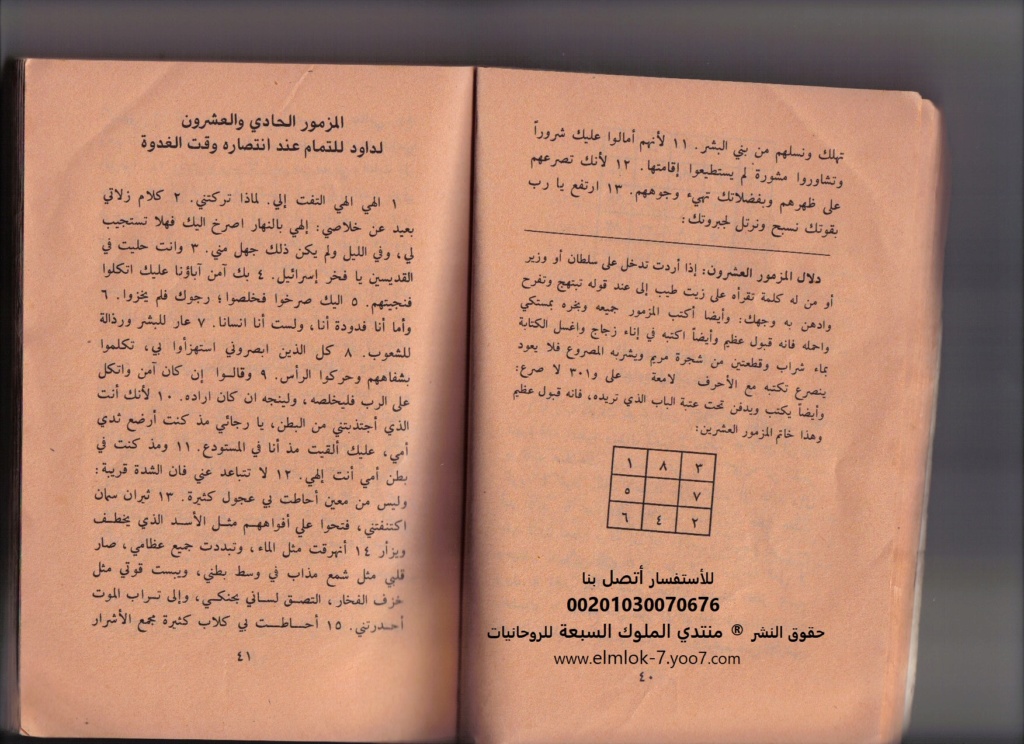 تهلك ونسلهم من بني البشر. ١١ لأنهم أمالوا عليك شروراً
وتشاوروا مشورة لم يستطيعوا إقامتها. ١٢ لأنك تصرعهم
على ظهرهم وبفضلاتك تهيء وجوههم. ١٣ ارتفع يا رب
بقوتك نسبح ونرتل لجبروتك:
دلال المزمور العشرون: إذا أردت تدخل على سلطان أو وزير
أو من له كلمة تقرأه على زيت طيب إلى عند قوله تبتهج وتفرح
وادهن به وجهك: وأيضا أكتب المزمور جميعه وبخره بمستكي
واحمله فانه قبول عظيم وأيضاً اكتبه في إناء زجاج واغسل الكتابة
بماء شراب وقطعتين من شجرة مريم ويشربه المصروع فلا يعود
ينصرع تكتبه مع الأحرف لامعة على و٣٠١ لا صرع:
وأيضاً يكتب ويدفن تحت عتبة الباب الذي تريده، فانه قبول عظيم
وهذا خاتم المزمور العشرين:
٣ ٨ ١
٧ ٥
٢ ٤ ٦
للأستفسار أتصل بنا
00201030070676
حقوق النشر ® منتدي الملوك السبعة للروحانيات
www.elmlok-7.yoo7.com
٤٠
المزمور الحادي والعشرون
لداود للتمام عند انتصاره وقت الغدوة
١ الهي الهي التفت إلي. لماذا تركتني. ٢ كلام زلاتي
بعيد عن خلاصي: إلهي بالنهار اصرخ اليك فهلا تستجيب
لي، وفي الليل ولم يكن ذلك جهل مني. ٣ وانت حليت في
القديسين يا فخر إسرائيل. ٤ بك آمن آباؤنا عليك اتكلوا
فنجيتهم. ٥ اليك صرخوا فخلصوا؛ رجوك فلم يخزوا. ٦
وأما أنا فدودة أنا، ولست أنا انسانا. ٧ عار للبشر ورذالة
للشعوب. ٨ كل الذين ابصروني استهزأوا بي، تكلموا
بشفاههم وحركوا الرأس. ٩ وقالوا إن كان آمن واتكل
على الرب فليخلصه، ولينجه ان كان اراده. ١٠ لأنك أنت
الذي أجتذبتني من البطن، يا رجائي مذ كنت أرضع ثدي
أمي، عليك ألقيت مذ أنا في المستودع. ١١ ومذ كنت في
بطن أمي أنت إلهي. ١٢ لا تتباعد عني فان الشدة قريبة:
وليس من معين أحاطت بي عجول كثيرة. ١٣ ثيران سمان
اكتنفتني، فتحوا علي أفواههم مثل الأسد الذي يخطف
ويزأر ١٤ أنهرقت مثل الماء، وتبددت جميع عظامي، صار
قلبي مثل شمع مذاب في وسط بطني، ويبست قوتي مثل
خزف الفخار، التصق لساني بحنكي، وإلى تراب الموت
أحدرتني. ١٥ أحاطت بي كلاب كثيرة بجمع الأشرار
٤١